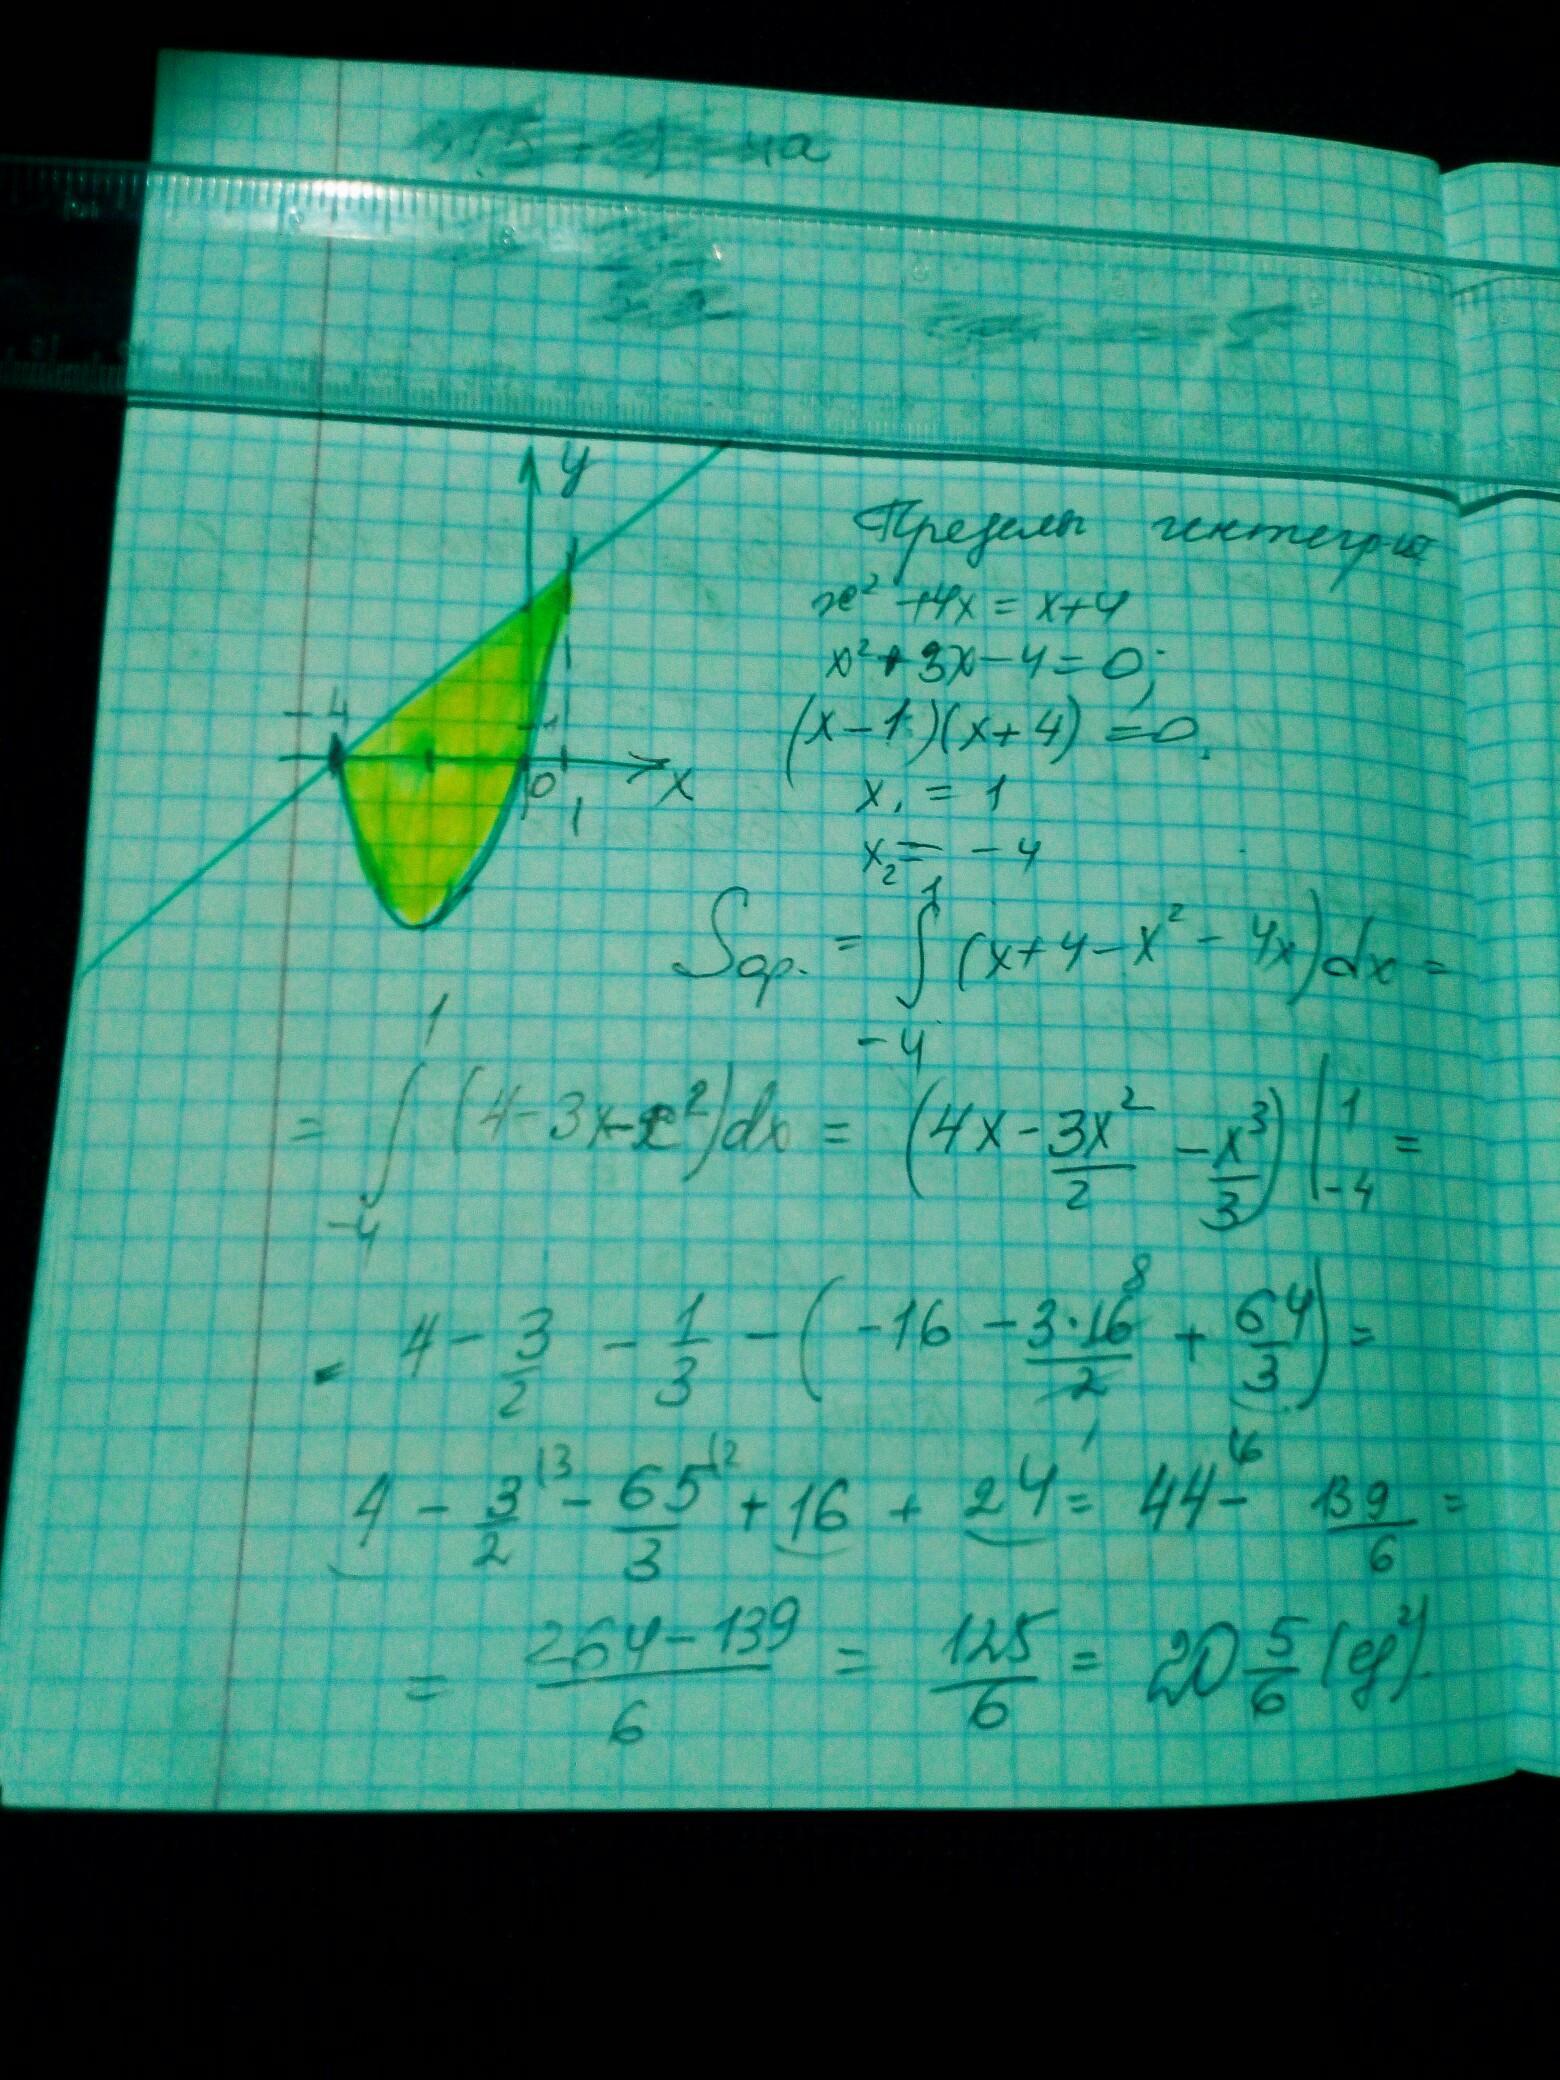 4a
y
Пределы интегр-ия
x² + 4x = x + 4
x² + 3x - 4 = 0;
-4
(x - 1)(x + 4) = 0.
0
x
1
x₁ = 1
x₂ = -4
Sφ. = ∫₋₄¹ (x + 4 - x² - 4x) dx =
= ∫₋₄¹ (4 - 3x - x²) dx = (4x - 3x²/2 - x³/3) |₋₄¹ =
= 4 - 3/2 - 1/3 - (-16 - 3·16⁸/2₁ + 64/3) =
4 - 3/2 ⁽³ - 65/3 ⁽² + 16 + 24 = 44 ⁽⁶ - 139/6 =
= (264 - 139)/6 = 125/6 = 20 5/6 (ед²).